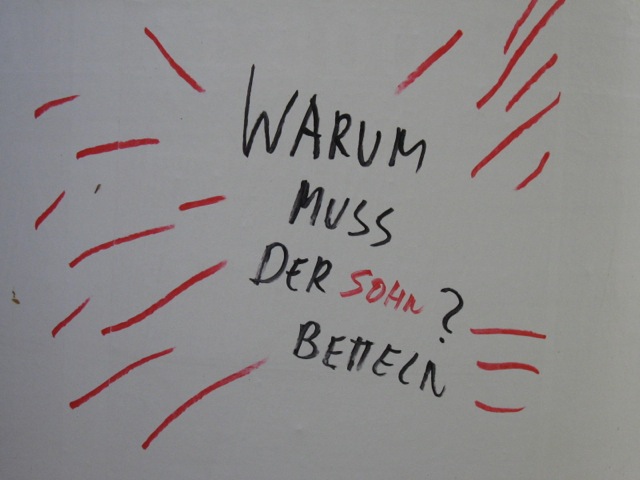 WARUM
MUSS
DER SOHN ?
BETTELN